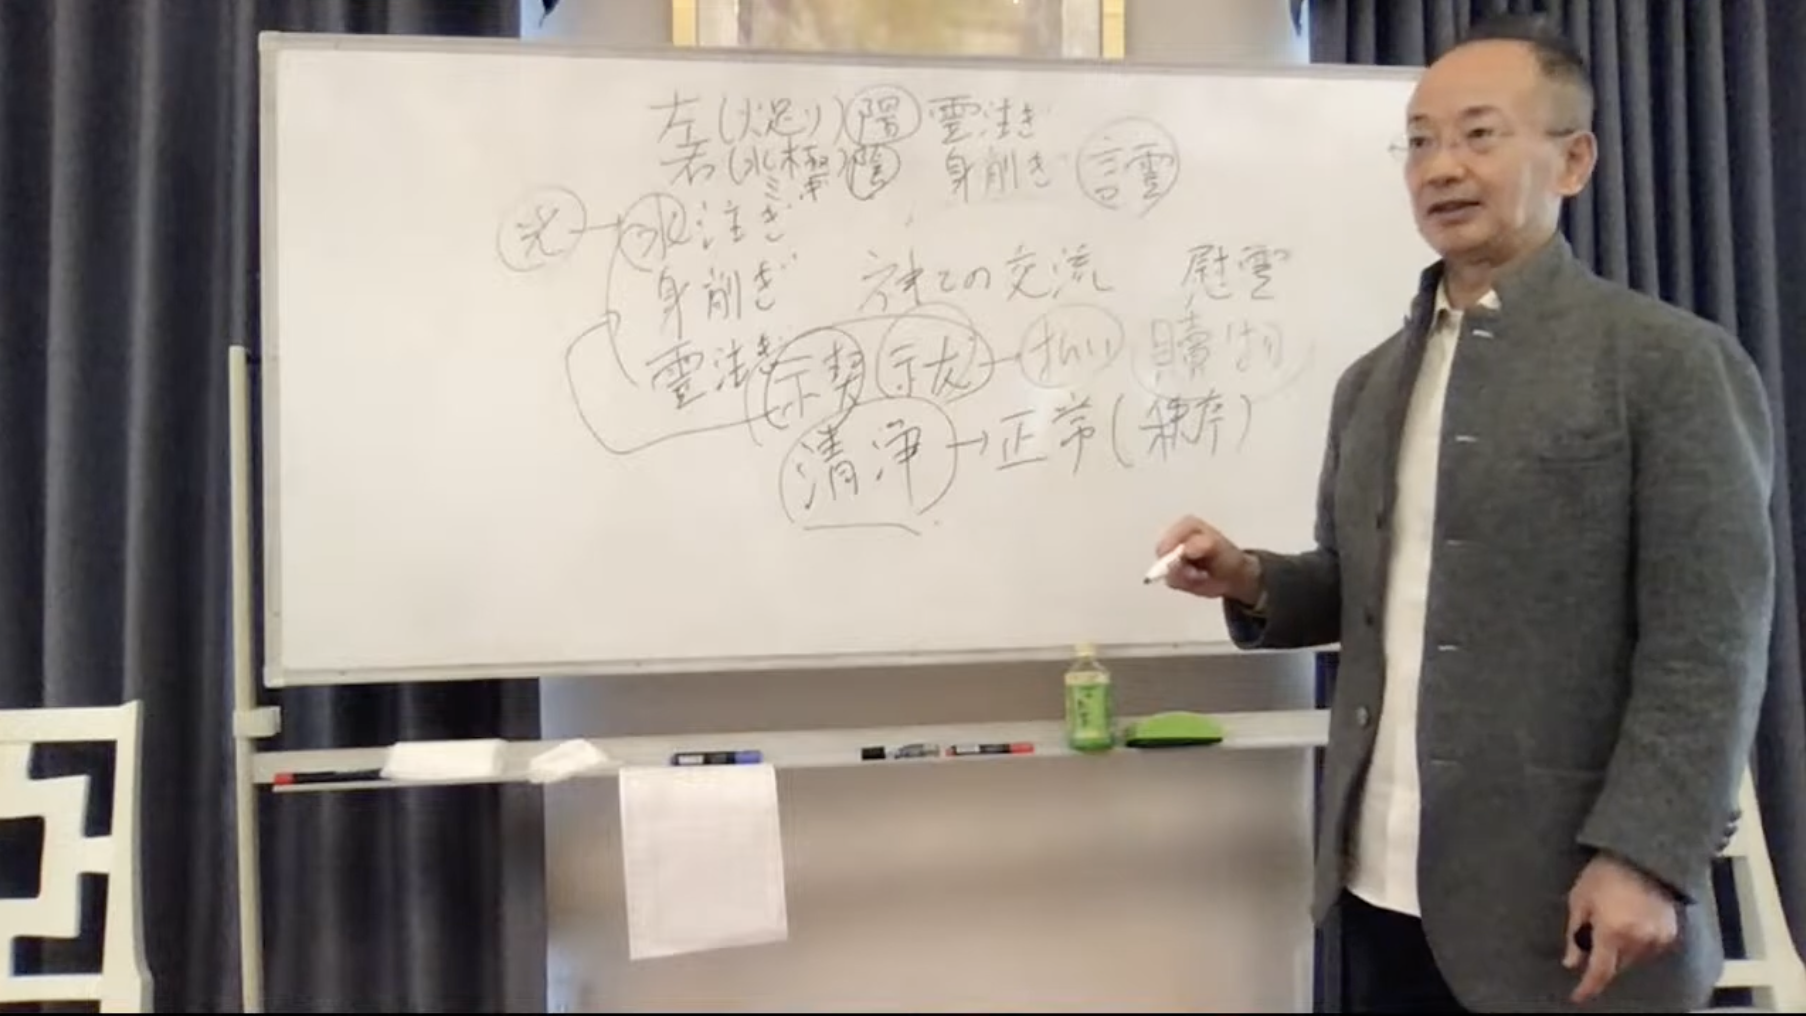 左(火足り)陽 霊注ぎ
右(水極)陰 身削ぎ 言霊
光→水注ぎ
身削ぎ 神との交流 慰霊
霊注ぎ 禊 祓→払い 贖物
清浄→正常(秩序)